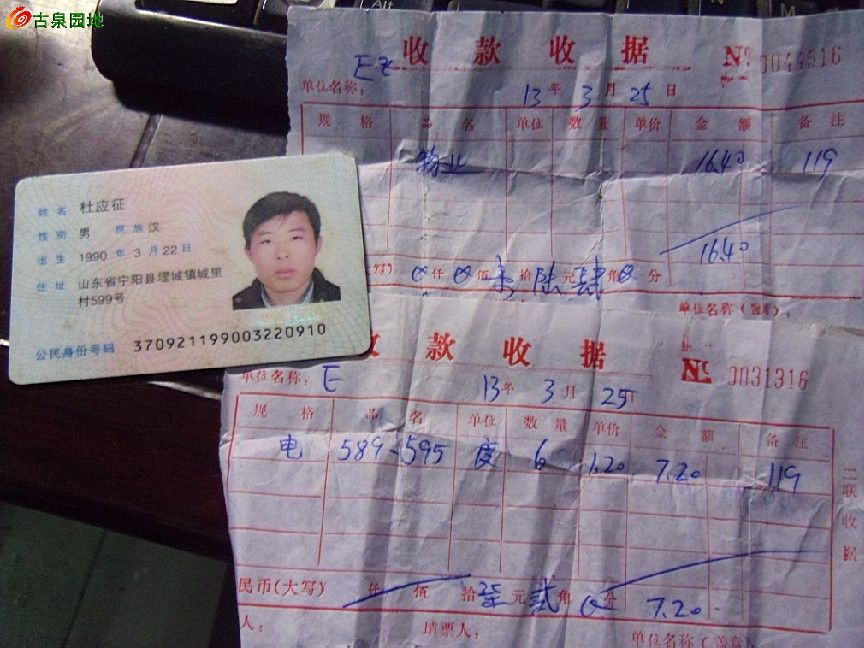 古泉园地
收款收据
№ 0044516
单位名称:
13年3月25日
规格 品名 单位 数量 单价 金额 备注
物业 16.40 119
16.40
写) 0仟0佰 拾陆元肆角0分
单位名称(盖章):
姓名 杜应征
性别 男 民族 汉
出生 1990年3月22日
住址 山东省宁阳县堽城镇城里
村599号
公民身份号码 370921199003220910
款收据
№ 0031316
单位名称: E
13年3月25日
规格 品名 单位 数量 单价 金额 备注
电 589-595 度 6 1.20 7.20 119
二联收据
民币(大写) 仟 佰 拾柒元贰角0分 7.20
人: 填票人: 单位名称(盖章)